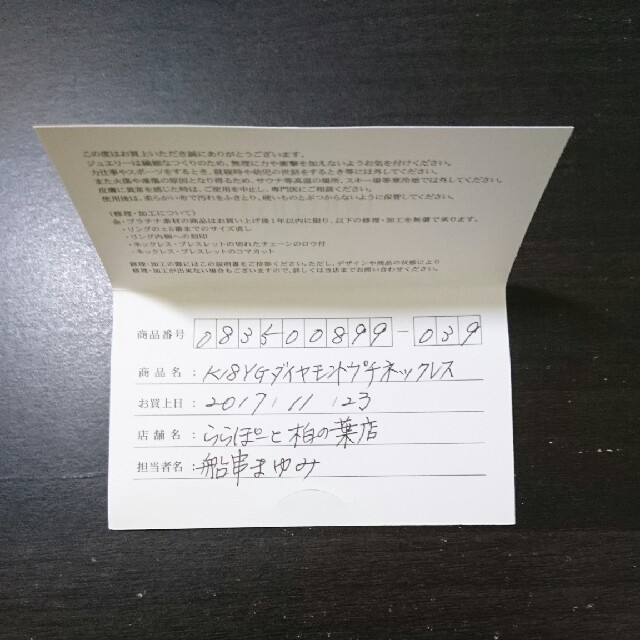 この度はお買上いただき誠にありがとうございます。
ジュエリーは繊細なつくりのため、無理に力や衝撃を加えないようお気を付けください。
力仕事やスポーツをするとき、就寝時や幼児の世話をするとき等には外してください。
また火傷や凍傷の原因となり得るため、サウナ等高温の場所、スキー場等寒冷地では外してください。
皮膚に異常を感じた時は、ご使用を中止し、専門医にご相談ください。
使用後は、柔らかい布で汚れをふきとり、硬いものとぶつからないように保管してください。
〈修理・加工について〉
金・プラチナ素材の商品はお買い上げ後1年以内に限り、以下の修理・加工を無償で承ります。
・リングの±2番までのサイズ直し
・リング内側への刻印
・ネックレス・ブレスレットの切れたチェーンのロウ付
・ネックレス・ブレスレットのコマカット
修理・加工の際にはこの説明書をご持参ください。ただし、デザインや商品の状態により
修理・加工が出来ない場合もございますので、詳しくは当店までお問い合わせください。
商品番号 083500899-039
商品名：K18YGダイヤモンドプチネックレス
お買上日：2017.11.23
店舗名：ららぽーと柏の葉店
担当者名：船串まゆみ